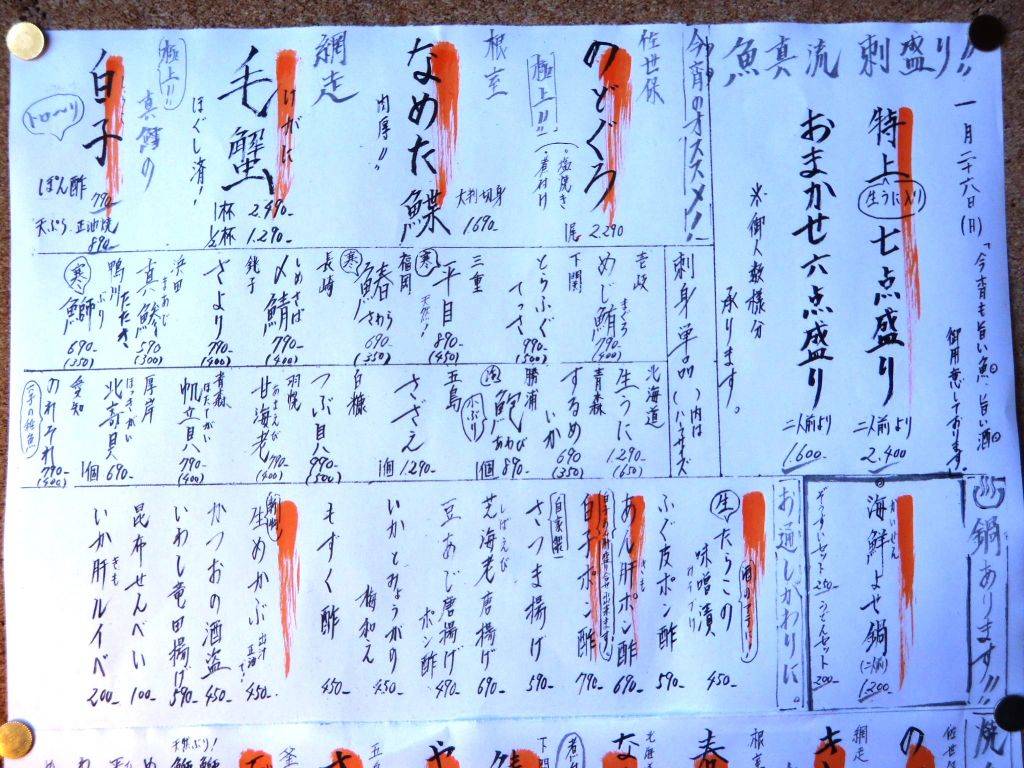 一月二十六日(日)
「今宵も旨い魚、旨い酒
御用意しております」
魚真流 刺盛り!!
特上七点盛り
生うに入り
二人前より
2.400
おまかせ六点盛り
二人前より
1.600
※御人数様分
承ります。
今宵のオススメ!
佐世保
のどぐろ
1尾 2.290
極上!!
(塩焼き
煮付け
根室
なめた鰈
大判切身
1690
肉厚!!
網走
けがに
毛蟹
1杯 2.490
1/2杯 1.290
ほぐし済!
極上!!
真鱈の
白子
トロ〜り
ぽん酢
790
天ぷら
890
刺身単品
( )内は
ハーフサイズ
壱岐
めじ鮪
まぐろ
790
(400)
下関
とらふぐ
てっさ
990
(500)
三重
寒
平目
天然!
890
(450)
福岡
寒
鰆
さわら
690
(350)
長崎
しめさば
〆鯖
790
(400)
銚子
さより
790
(400)
浜田
まあじ
真鯵
たたき
590
(300)
鴨川
ぶり
寒
鰤
690
(350)
北海道
生うに
1.290
(650)
青森
するめいか
690
(350)
勝浦
活
鮑
あわび
小ぶり
1個 890
五島
さざえ
1個 1.290
白糠
つぶ貝
990
(500)
羽幌
あまえび
甘海老
790
(400)
青森
ほたてがい
帆立貝
790
(400)
厚岸
ほっきがい
北寄貝
1個 690
愛知
のれそれ
穴子の稚魚
790
(400)
鍋あります!!
かいせん
海鮮よせ鍋
(二人前)
1.200
ぞうすいセット 250
うどんセット 200
お通しかわりに。
生
たらこの
味噌漬
酒のアテに!
450
ふぐ皮ポン酢
590
あん肝ポン酢
きも
690
白子ポン酢
790
自家製
さつま揚げ
590
しばえび
芝海老唐揚げ
690
豆あじ唐揚げ
ポン酢
490
いかとみょうがの
梅和え
450
もずく酢
450
生めかぶ
出汁
正油で!
450
かつおの酒盗
450
いわし竜田揚げ
590
昆布せんべい
100
いか肝ルイベ
きも
200
焼
佐世保
の
網走
き
根室
春
北海道
な
煮
下関
や
五島
さ
釜
天然ぶり!